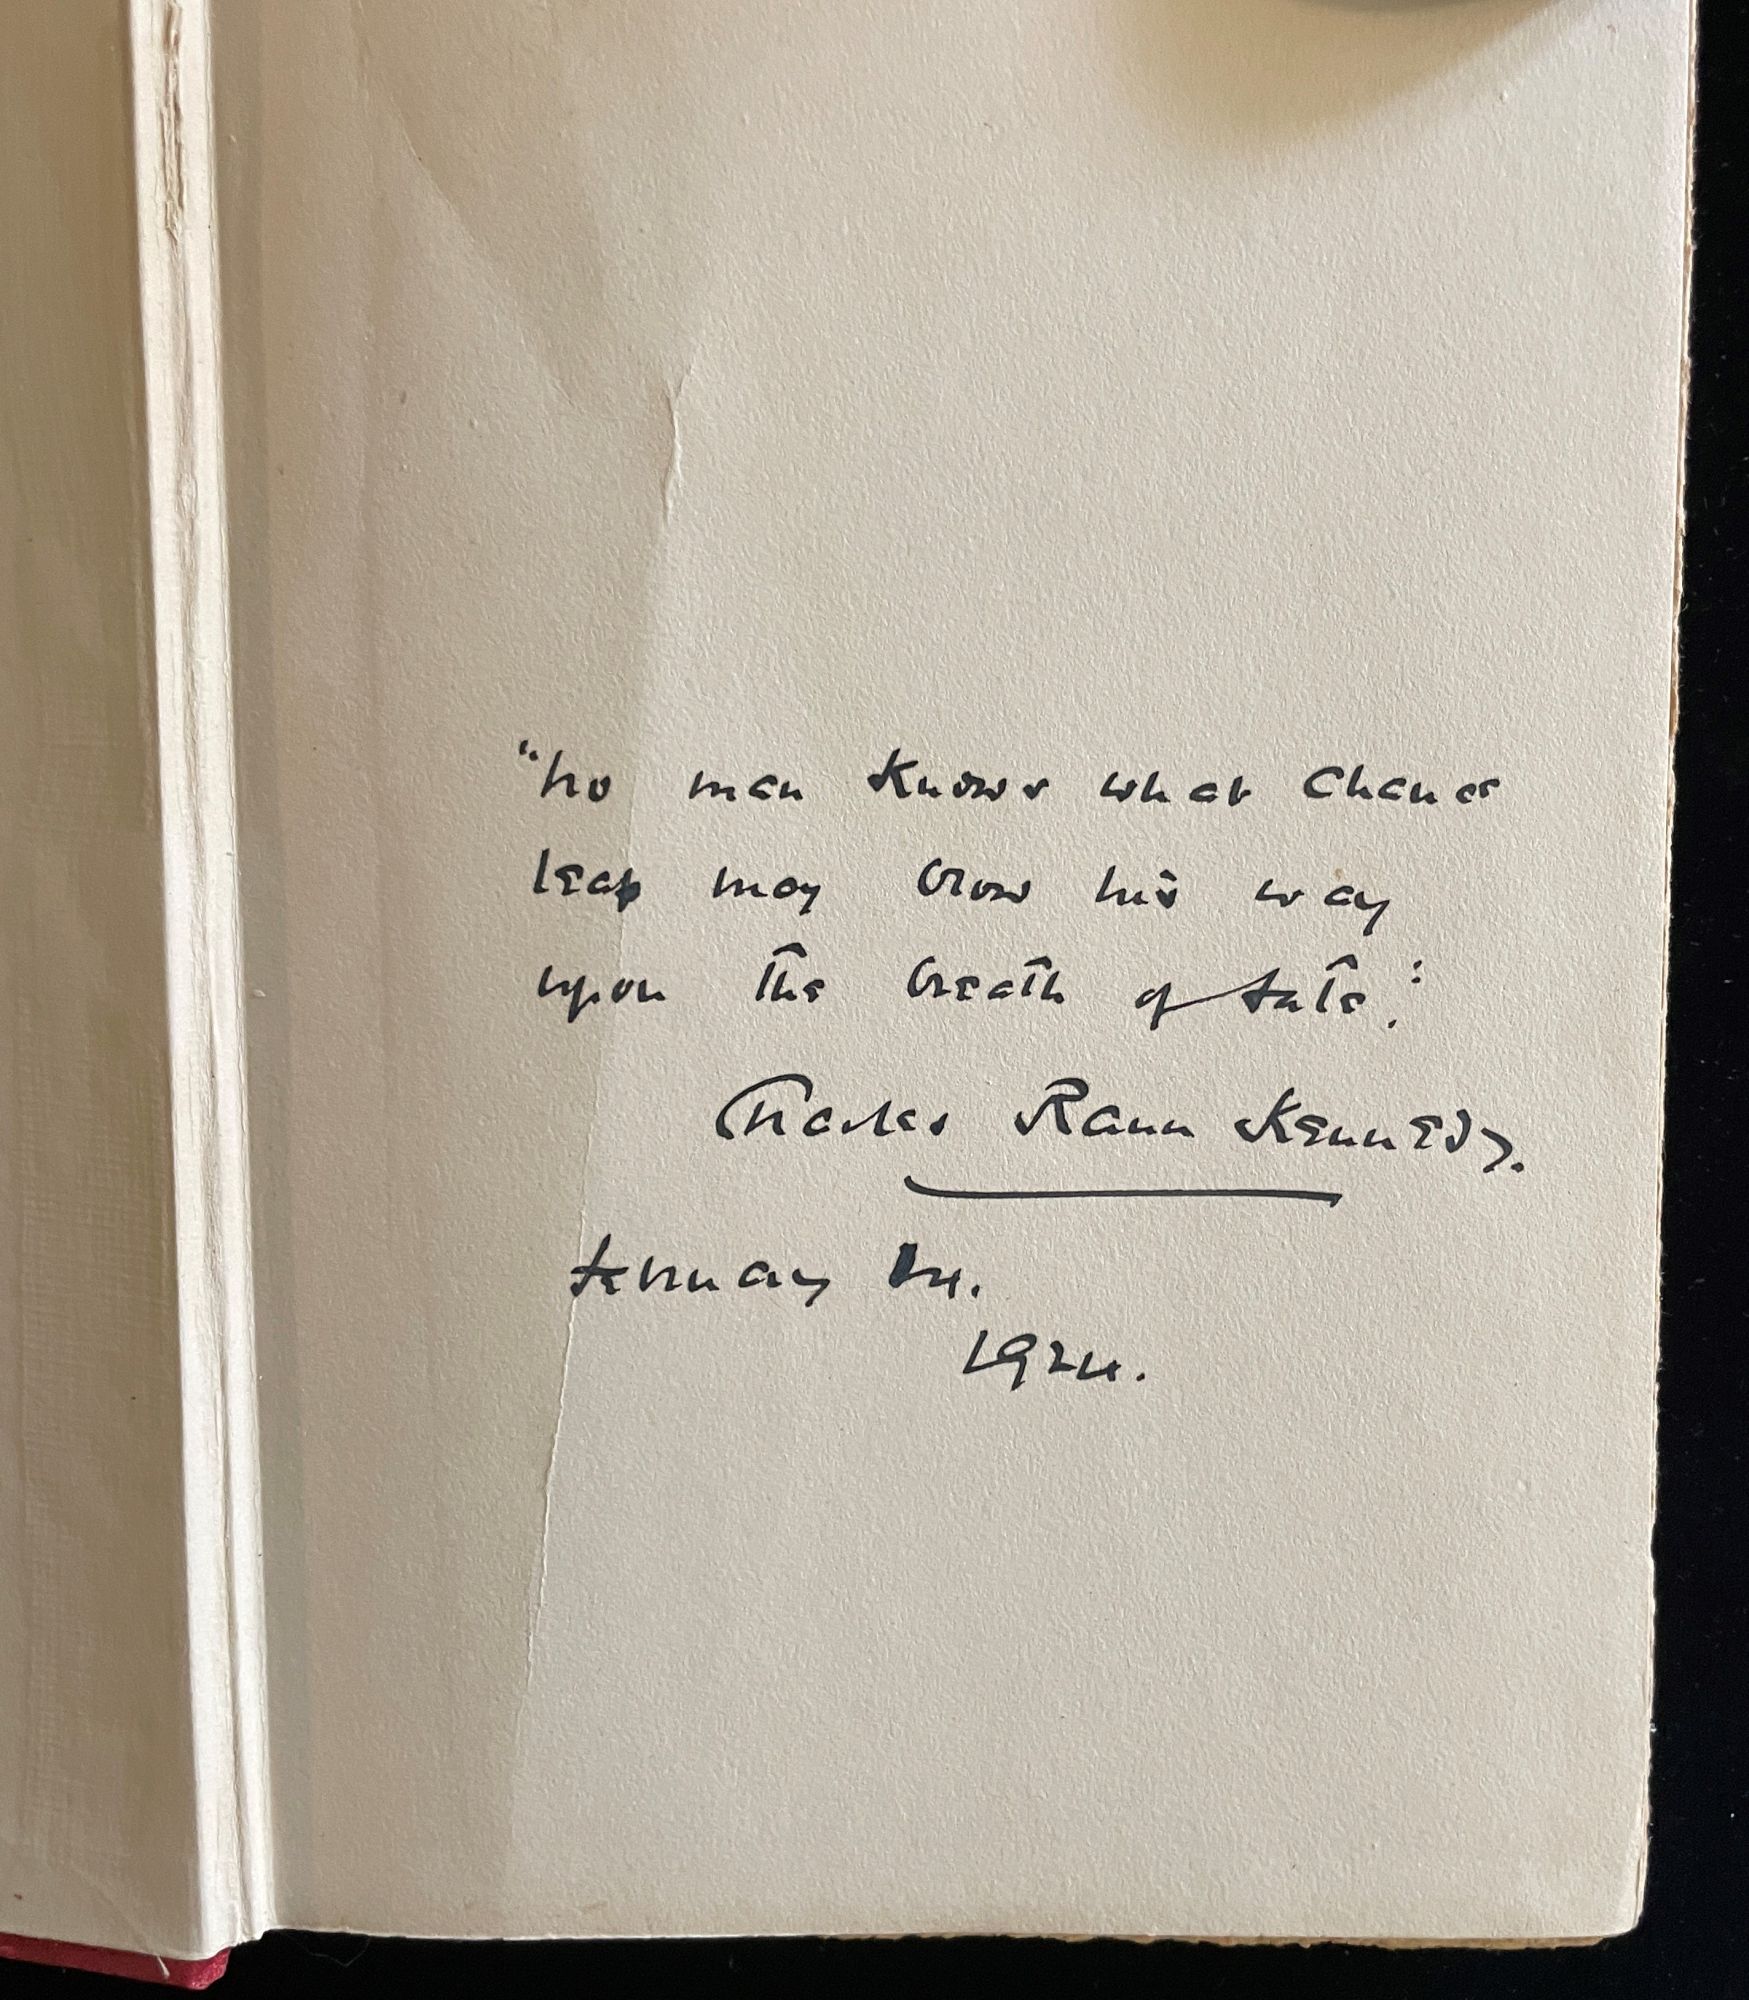 "No man knows what chance
leaf may blow his way
upon the breath of fate."
Charles Rann Kennedy.
February 24.
1924.